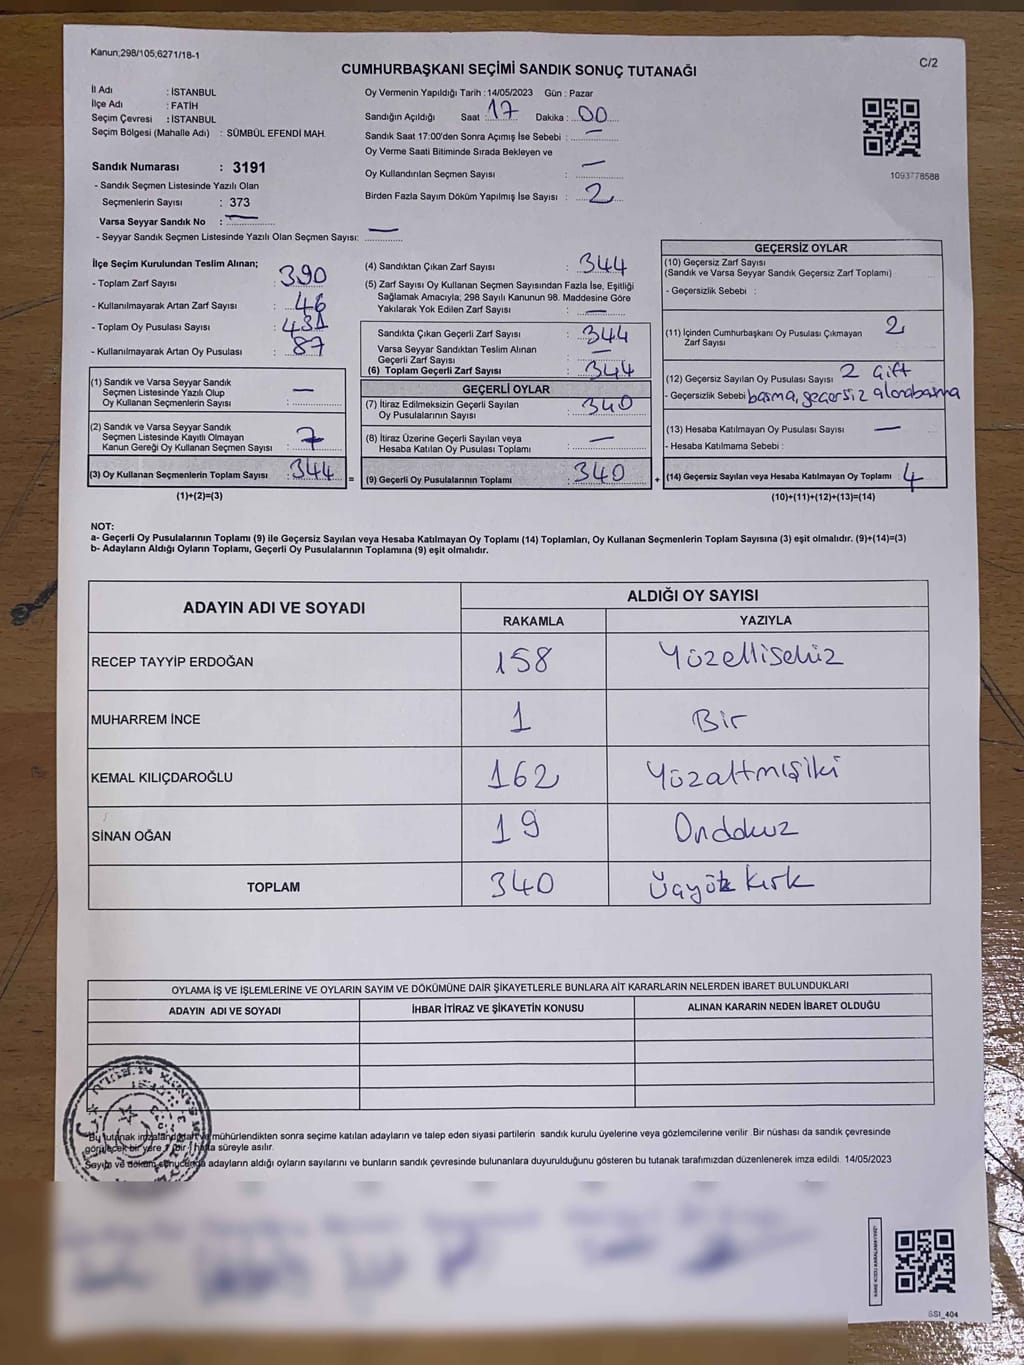 Kanun,298/105,6271/18-1
C/2
CUMHURBAŞKANI SEÇİMİ SANDIK SONUÇ TUTANAĞI
İl Adı : İSTANBUL
İlçe Adı : FATİH
Seçim Çevresi : İSTANBUL
Seçim Bölgesi (Mahalle Adı) : SÜMBÜL EFENDİ MAH.
Sandık Numarası : 3191
- Sandık Seçmen Listesinde Yazılı Olan
Seçmenlerin Sayısı : 373
Varsa Seyyar Sandık No : —
- Seyyar Sandık Seçmen Listesinde Yazılı Olan Seçmen Sayısı: —
Oy Vermenin Yapıldığı Tarih : 14/05/2023 Gün : Pazar
Sandığın Açıldığı Saat : 17 Dakika : 00
Sandık Saat 17:00'den Sonra Açımış İse Sebebi : —
Oy Verme Saati Bitiminde Sırada Bekleyen ve
Oy Kullandırılan Seçmen Sayısı : —
Birden Fazla Sayım Döküm Yapılmış İse Sayısı : 2
1093778588
İlçe Seçim Kurulundan Teslim Alınan;
- Toplam Zarf Sayısı : 390
- Kullanılmayarak Artan Zarf Sayısı : 46
- Toplam Oy Pusulası Sayısı : 431
- Kullanılmayarak Artan Oy Pusulası : 87
(1) Sandık ve Varsa Seyyar Sandık
Seçmen Listesinde Yazılı Olup
Oy Kullanan Seçmenlerin Sayısı : —
(2) Sandık ve Varsa Seyyar Sandık
Seçmen Listesinde Kayıtlı Olmayan
Kanun Gereği Oy Kullanan Seçmen Sayısı : 7
(3) Oy Kullanan Seçmenlerin Toplam Sayısı : 344
(1)+(2)=(3)
(4) Sandıktan Çıkan Zarf Sayısı : 344
(5) Zarf Sayısı Oy Kullanan Seçmen Sayısından Fazla İse, Eşitliği
Sağlamak Amacıyla; 298 Sayılı Kanunun 98. Maddesine Göre
Yakılarak Yok Edilen Zarf Sayısı : —
Sandıkta Çıkan Geçerli Zarf Sayısı : 344
Varsa Seyyar Sandıktan Teslim Alınan
Geçerli Zarf Sayısı : —
(6) Toplam Geçerli Zarf Sayısı : 344
GEÇERLİ OYLAR
(7) İtiraz Edilmeksizin Geçerli Sayılan
Oy Pusulalarının Sayısı : 340
(8) İtiraz Üzerine Geçerli Sayılan veya
Hesaba Katılan Oy Pusulası Toplamı : —
= (9) Geçerli Oy Pusulalarının Toplamı : 340
GEÇERSİZ OYLAR
(10) Geçersiz Zarf Sayısı :
(Sandık ve Varsa Seyyar Sandık Geçersiz Zarf Toplamı)
- Geçersizlik Sebebi :
(11) İçinden Cumhurbaşkanı Oy Pusulası Çıkmayan
Zarf Sayısı : 2
(12) Geçersiz Sayılan Oy Pusulası Sayısı : 2 Çift
- Geçersizlik Sebebi basma, geçersiz alana basma
(13) Hesaba Katılmayan Oy Pusulası Sayısı : —
- Hesaba Katılmama Sebebi :
+ (14) Geçersiz Sayılan veya Hesaba Katılmayan Oy Toplamı : 4
(10)+(11)+(12)+(13)=(14)
NOT:
a- Geçerli Oy Pusulalarının Toplamı (9) ile Geçersiz Sayılan veya Hesaba Katılmayan Oy Toplamı (14) Toplamları, Oy Kullanan Seçmenlerin Toplam Sayısına (3) eşit olmalıdır. (9)+(14)=(3)
b- Adayların Aldığı Oyların Toplamı, Geçerli Oy Pusulalarının Toplamına (9) eşit olmalıdır.
ADAYIN ADI VE SOYADI
ALDIĞI OY SAYISI
RAKAMLA YAZIYLA
RECEP TAYYİP ERDOĞAN 158 Yüzellisekiz
MUHARREM İNCE 1 Bir
KEMAL KILIÇDAROĞLU 162 Yüzaltmışiki
SİNAN OĞAN 19 Ondokuz
TOPLAM 340 Üçyüz Kırk
OYLAMA İŞ VE İŞLEMLERİNE VE OYLARIN SAYIM VE DÖKÜMÜNE DAİR ŞİKAYETLERLE BUNLARA AİT KARARLARIN NELERDEN İBARET BULUNDUKLARI
ADAYIN ADI VE SOYADI İHBAR İTİRAZ VE ŞİKAYETİN KONUSU ALINAN KARARIN NEDEN İBARET OLDUĞU
Bu tutanak imzalandıktan ve mühürlendikten sonra seçime katılan adayların ve talep eden siyasi partilerin sandık kurulu üyelerine veya gözlemcilerine verilir. Bir nüshası da sandık çevresinde
görülecek bir yere 1 (bir) hafta süreyle asılır.
Sayım ve döküm sonucunda adayların aldığı oyların sayılarını ve bunların sandık çevresinde bulunanlara duyurulduğunu gösteren bu tutanak tarafımızdan düzenlenerek imza edildi. 14/05/2023
SSI_404